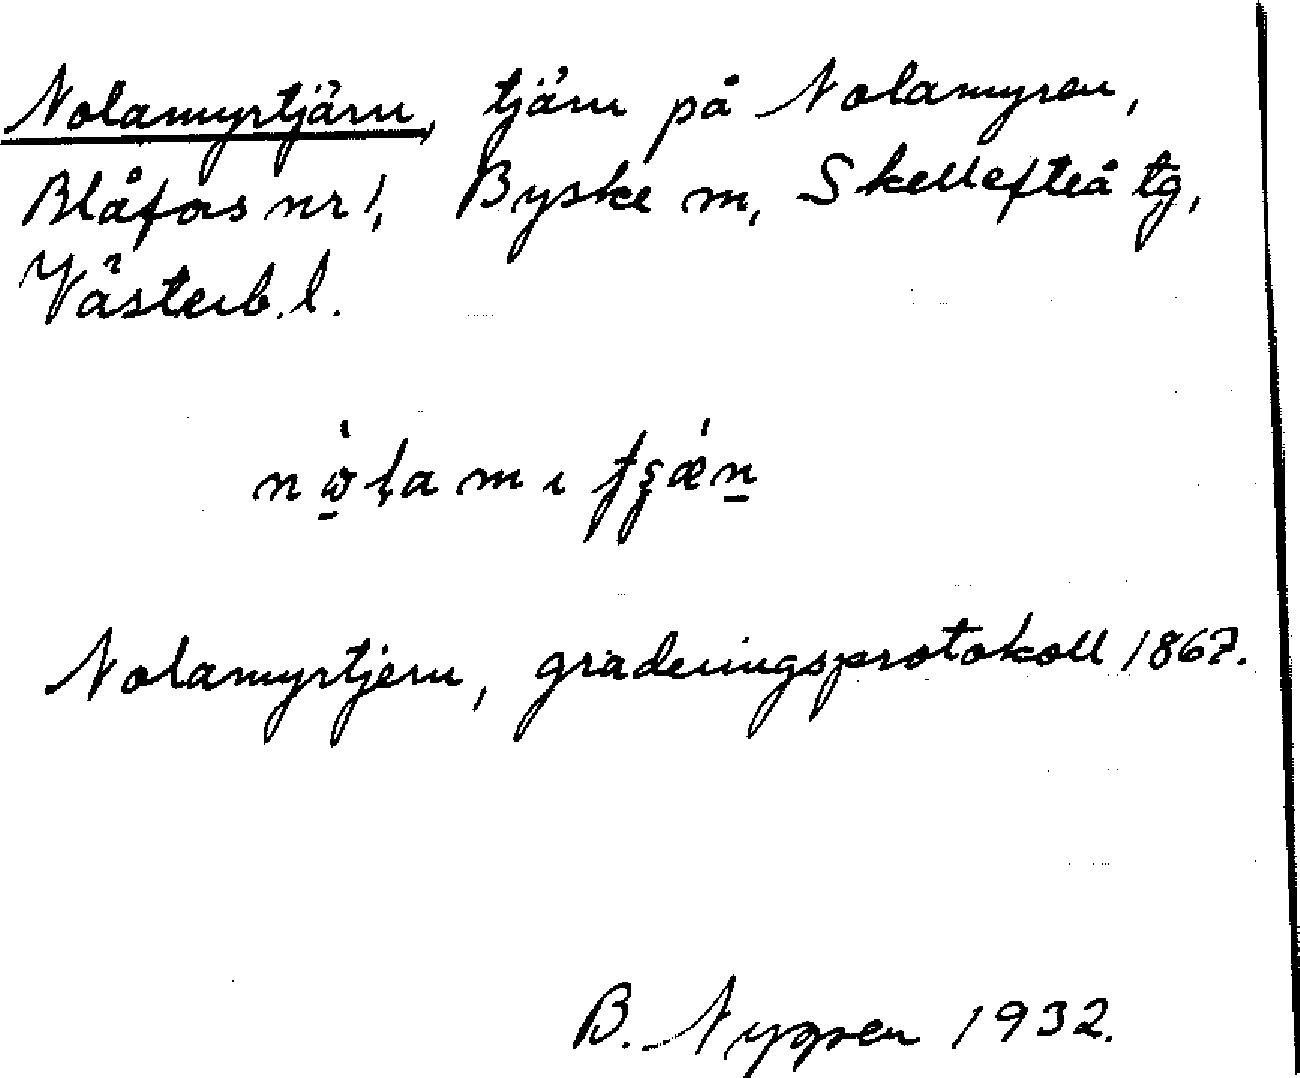 Nolamyrtjärn, tjärn på Nolamyren,
Blåfors nr 1, Byske sn, Skellefteå tg,
Västerb. l.
Nolamyrtjern, graderingsprotokoll 1867.
B. Nygren 1932.